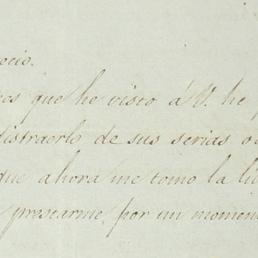 ocio.
os que he visto á V. he p
distraerlo de sus serias o
que ahora me tomo la li
prestarme, por un momen